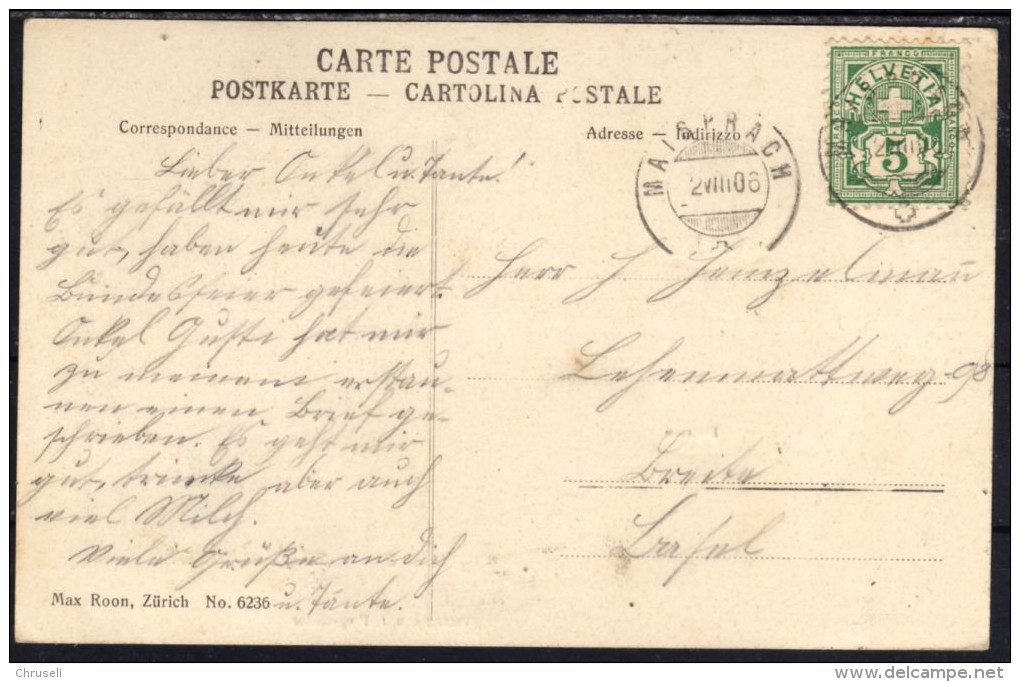 CARTE POSTALE
POSTKARTE — CARTOLINA POSTALE
Correspondance — Mitteilungen
Adresse — Indirizzo
MAISPRACH
2 VIII 06
FRANCO
HELVETIA
5
Lieber Onkel u. Tante!
Es gefällt mir sehr
gut, haben heute die
Bundesfeier gefeiert.
Onkel Gusti hat mir
zu meinem erstau-
nen einen Brief ge-
schrieben. Es geht mir
gut, trinke aber auch
viel Milch.
Viele Grüße an dich
u. Tante.
Herr
Lehenmattweg 98
Breite
Basel
Max Roon, Zürich No. 6236
Chruseli
www.delcampe.net